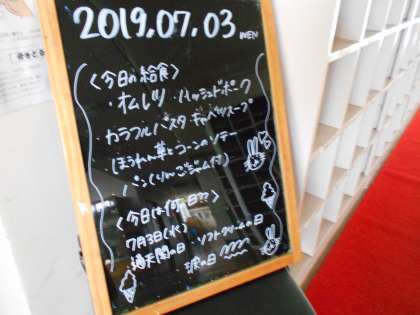 2019.07.03 WEN
<今日の給食>
・オムレツ ・ハッシュドポーク
・カラフルパスタ ・キャベツスープ
・ほうれん草とコーンのソテー
・パン(りんごジャム付)
<今日は何の日??>
7月3日(水)
通天閣の日 ・ソフトクリームの日
波の日